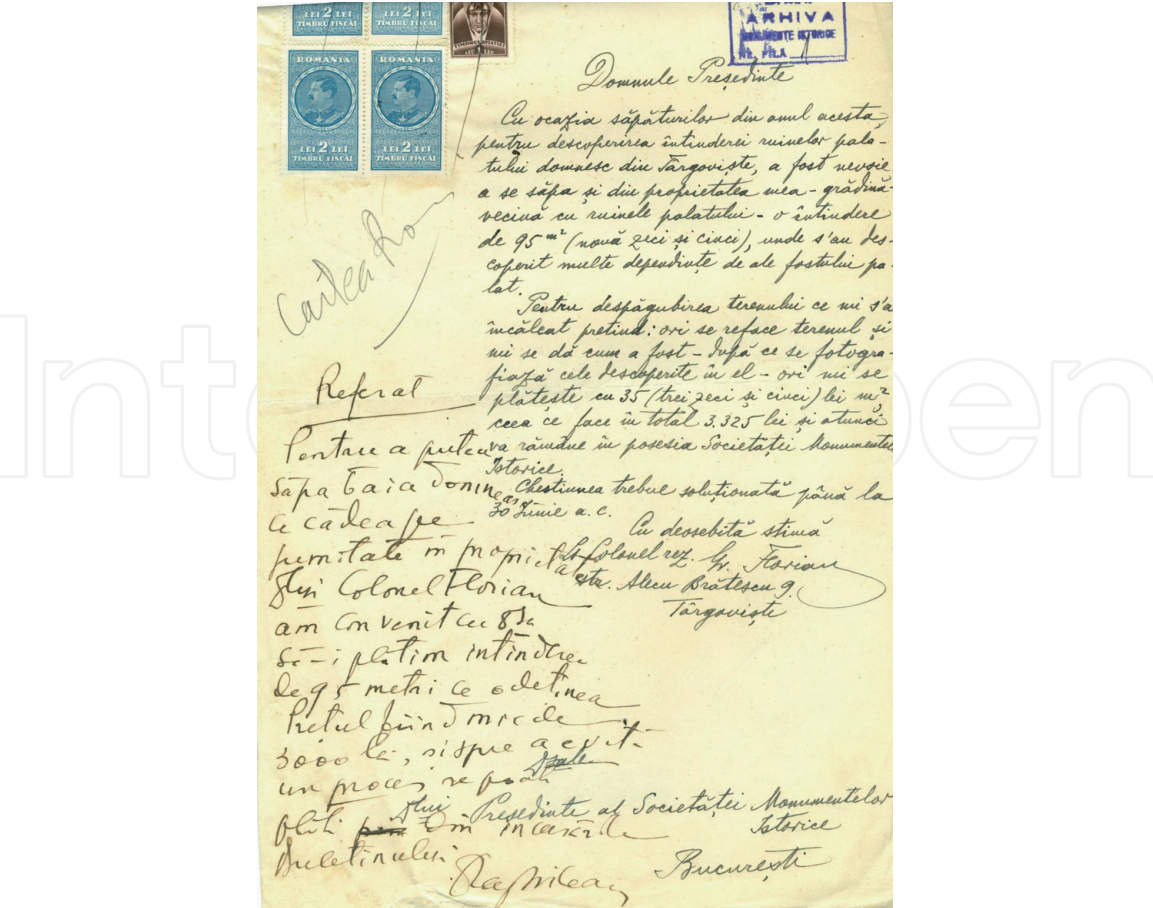 LEI 2 LEI
TIMBRU FISCAL
LEI 2 LEI
TIMBRU FISCAL
ROMANIA
LEI 2 LEI
TIMBRU FISCAL
ROMANIA
LEI 2 LEI
TIMBRU FISCAL
TIMBRUL AVIATIEI
ARHIVA
MONUMENTE ISTORICE
FILA
Domnule Președinte
Cu ocazia săpăturilor din anul acesta,
pentru descoperirea întinderei ruinelor pala-
tului domnesc din Târgoviște, a fost nevoie
a se săpa și din proprietatea mea - grădină
vecină cu ruinele palatului - o întindere
de 95 m² (nouă zeci și cinci), unde s'au des-
coperit multe dependințe de ale fostului pa-
lat.
Pentru despăgubirea terenului ce mi s'a
încălcat pretind: ori se reface terenul și
mi se dă cum a fost - după ce se fotogra-
fiază cele descoperite în el - ori mi se
plătește cu 35 (trei zeci și cinci) lei m²,
ceea ce face în total 3.325 lei și atunci
va rămâne în posesia Societăței Monumentelor
Istorice.
Chestiunea trebue soluționată până la
30 Iunie a.c.
Cu deosebită stimă
Lt. Colonel rez. Gr. Florian
str. Alecu Brătescu 9.
Târgoviște
Cartea Rom
Referat
Pentru a putea
săpa baia domneas
că cădea pe
jumătate în proprietat
Dlui Colonel Florian
am convenit cu Dsa
să-i plătim întinderea
de 95 metri ce o deținea
Prețul fiind mic de
3000 lei, și spre a evita
un proces se poate
plăti din încasările
Buletinului
Dsale
Dlui Președinte al Societăței Monumentelor
Istorice
București
Interopen